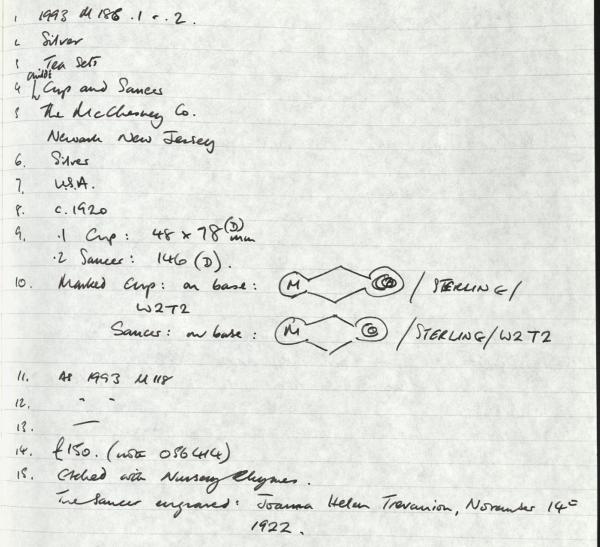 1 1993 M186 .1 - .2.
2 Silver
3 Tea Sets
4 Child's Cup and Saucer
5 The McChesney Co.
Newark New Jersey
6. Silver
7. U.S.A.
8. c. 1920
9. .1 Cup: 48 x 78 (D) mm
.2 Saucer: 146 (D).
10. Marked Cup: on base: M C / STERLING /
W2T2
Saucer: on base: M C / STERLING / W2T2
11. As 1993 M118
12. " "
13. —
14. £150. (note 056414)
15. Etched with Nursery Rhymes.
The Saucer engraved: Joanna Helen Trevanion, November 14=
1922.